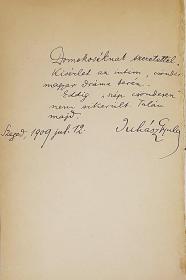 Domokoséknak szeretettel.
Kísérlet az intim, csöndes
magyar dráma terén.
Eddig "népi csöndesen"
nem sikerült. Talán
majd.
Szeged, 1909 júl. 12.
Juhász Gyula